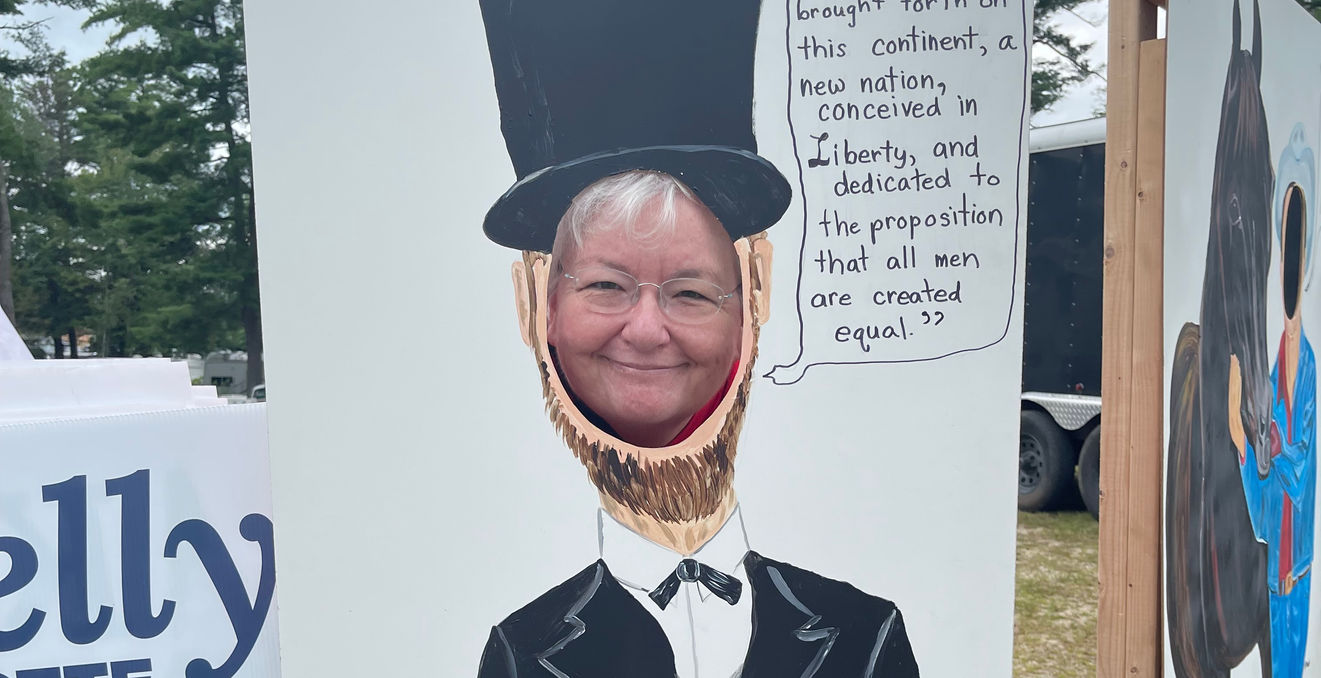 brought forth on
this continent, a
new nation,
conceived in
Liberty, and
dedicated to
the proposition
that all men
are created
equal.”
elly